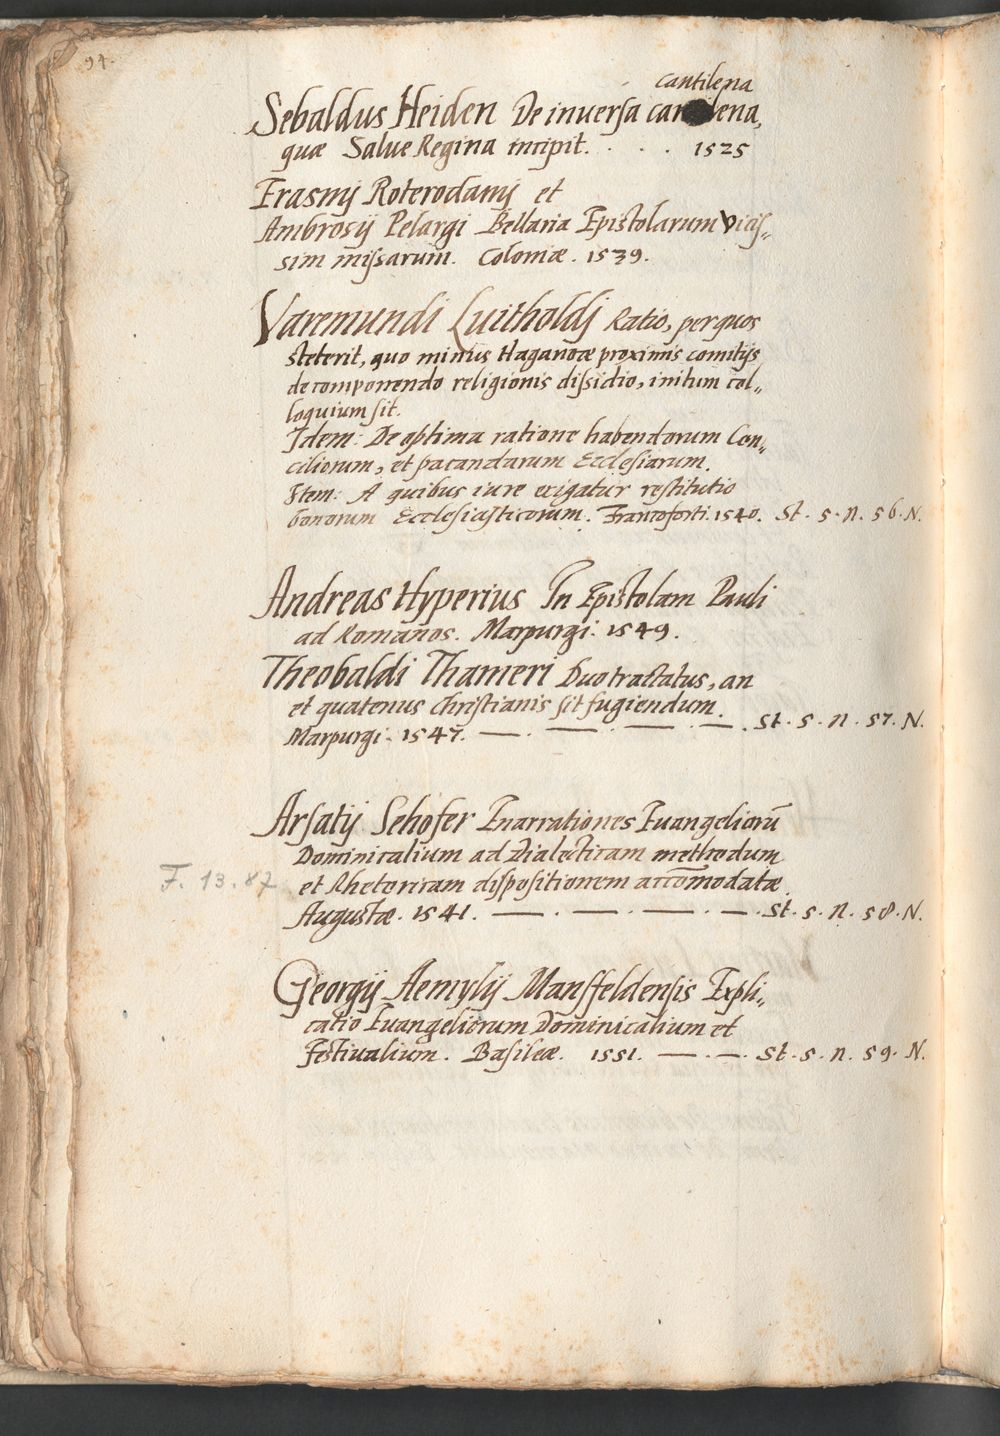 94.
cantilena
Sebaldus Heiden De inuersa cantilena,
quæ Salue Regina incipit. . . . 1525
Erasmj Roterodamj et
Ambrosij Pelargi Bellaria Epistolarum Vicis„
sim missarum. Coloniæ. 1539.
Varemundi Luitholdj Ratio, per quos
steterit, quo minus Haganoæ proximis comitijs
de componendo religionis dissidio, initum col„
loquium sit.
Idem: De optima ratione habendorum Con„
ciliorum, et pacandarum Ecclesiarum.
Item: A quibus iure exigatur restitutio
bonorum Ecclesiasticorum. Francoforti. 1540. St. 5. n. 56. N.
Andreas Hyperius In Epistolam Pauli
ad Romanos. Marpurgi. 1549.
Theobaldi Thameri Duo tractatus, an
et quatenus Christianis sit fugiendum.
Marpurgi. 1547. — . — . — . — . St. 5. n. 57. N.
Arsatij Sehofer Enarrationes Euangeliorũ
Dominicalium ad Dialecticam methodum
F. 13. 87
et Rhetoricam dispositionem accõmodatæ.
Augustæ. 1541. — . — . — . — . St. 5. n. 58. N.
Georgij Aemylij Mansfeldensis Expli„
catio Euangeliorum Dominicalium et
Festiualium. Basileæ. 1551. — . — . St. 5. n. 59. N.